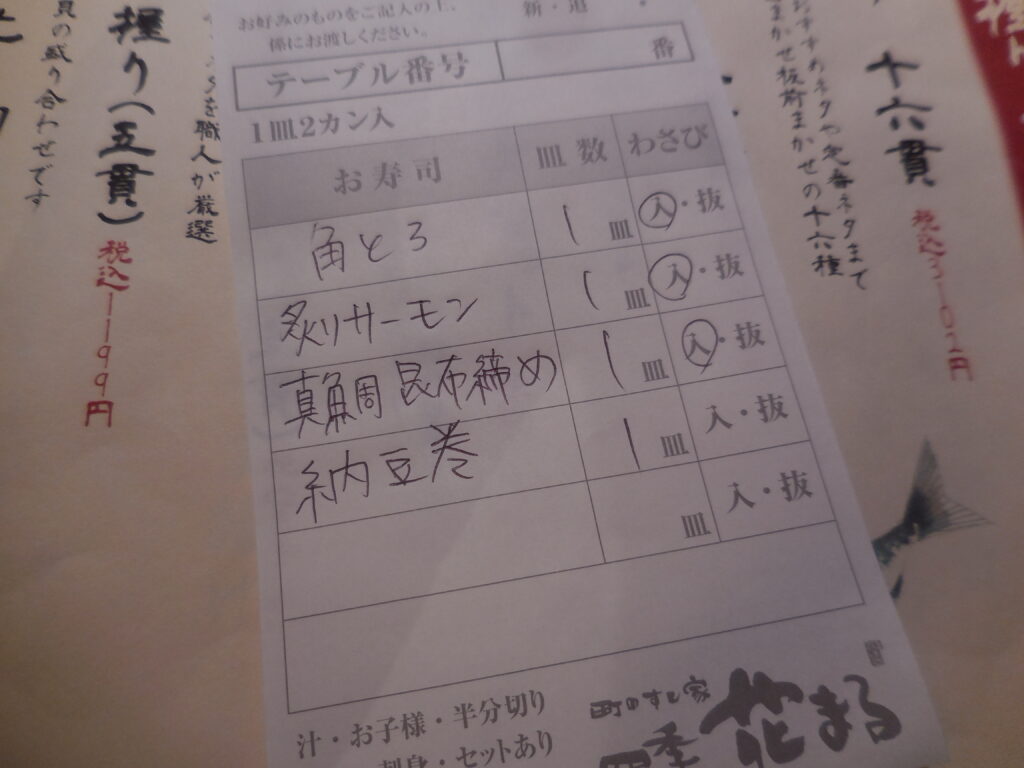 お好みのものをご記入の上、
係にお渡しください。
新・追
テーブル番号 番
1皿2カン入
お寿司 皿数 わさび
角とろ 1皿 入・抜
炙りサーモン 1皿 入・抜
真鯛 昆布締め 1皿 入・抜
納豆巻 1皿 入・抜
皿 入・抜
汁・お子様・半分切り
刺身・セットあり
町のすし家
四季花まる
握り(五貫)
税込一一九九円
を職人が厳選
貝の盛り合わせです
十六貫
税込三一〇二円
おすすめネタや定番ネタまで
まかせ抜粋まかせの十六種